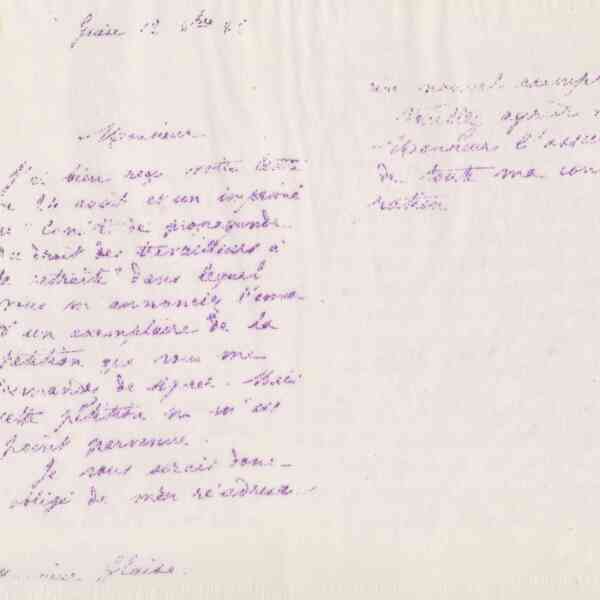 Guise 12 8bre 82
Monsieur
J'ai bien reçu votre lettre
du 26 août et un imprimé
du "Comité de propagande
du droit des travailleurs à
la retraite" dans lequel
vous m'annonciez l'envoi
d'un exemplaire de la
pétition que vous me
demandez de signer. Mais
cette pétition ne m'est
point parvenue.
Je vous serais donc
obligé de m'en réadresser
Monsieur
un nouvel exempl
Veuillez agréer
Monsieur l'assu
de toute ma con
ration